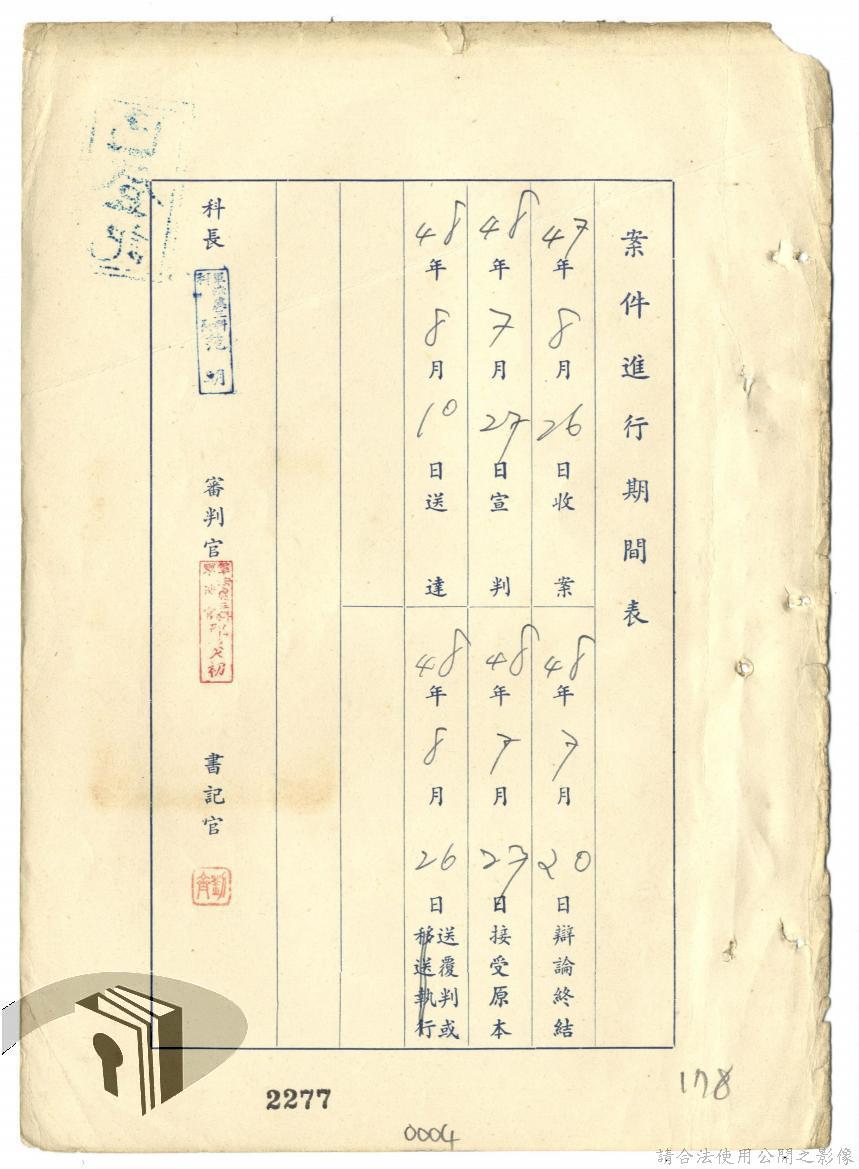 案件進行期間表
47年8月26日收案
48年7月20日辯論終結
48年7月27日宣判
48年7月23日接受原本
48年8月10日送達
48年8月26日送覆判或移送執行
科長
審判官
書記官
2277
0004
178
請合法使用公開之影像